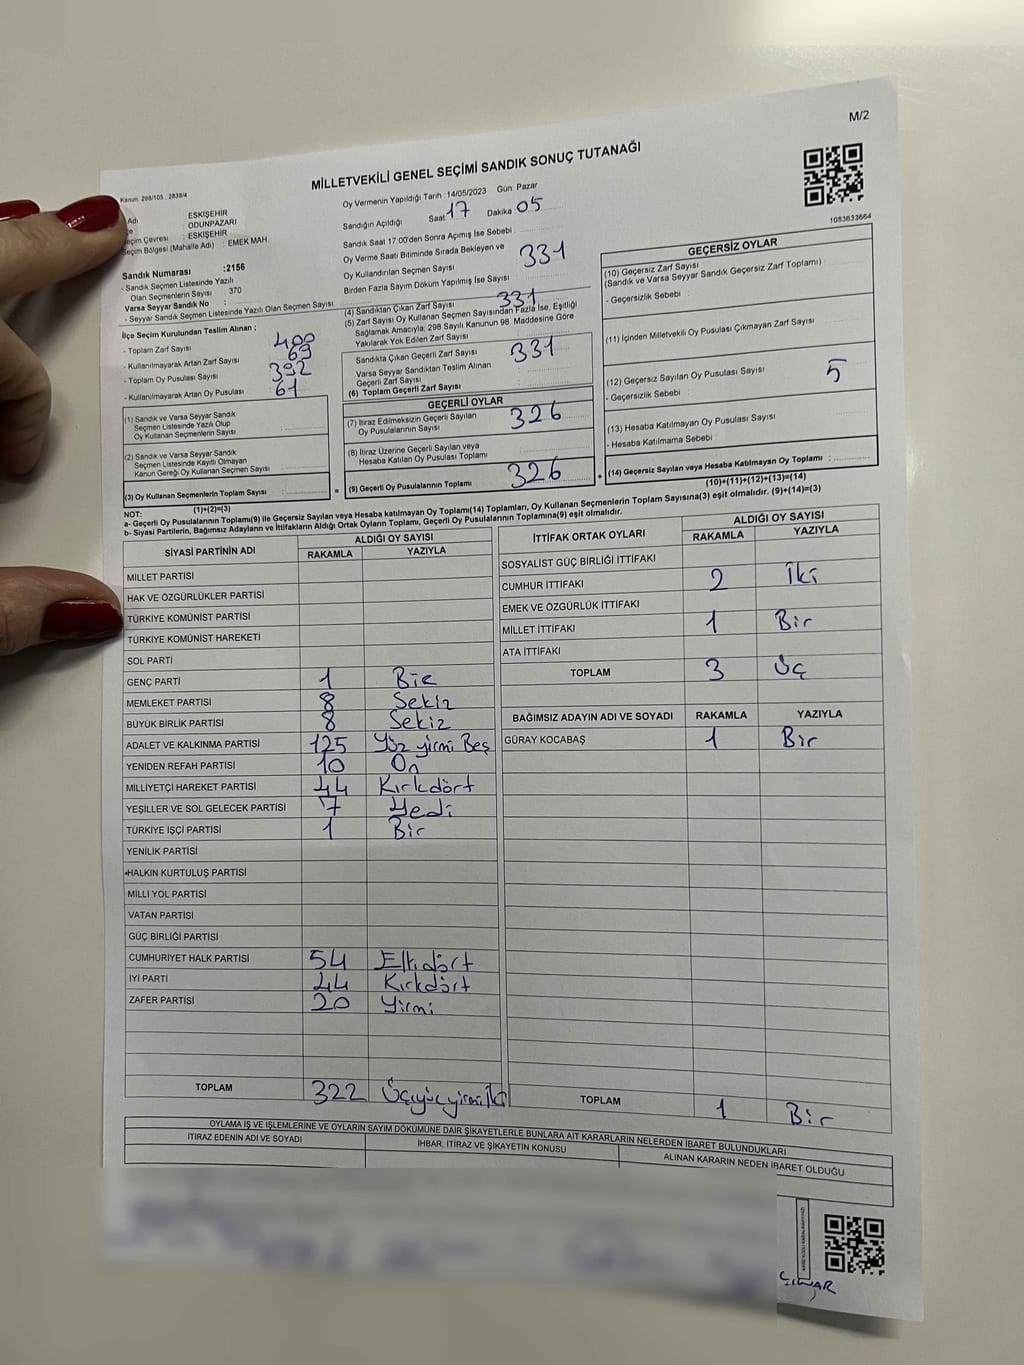 M/2
Kanun: 298/105 , 2839/4
MİLLETVEKİLİ GENEL SEÇİMİ SANDIK SONUÇ TUTANAĞI
Adı : ESKİŞEHİR
: ODUNPAZARI
Seçim Çevresi : ESKİŞEHİR
Seçim Bölgesi (Mahalle Adı) : EMEK MAH
Sandık Numarası :2156
- Sandık Seçmen Listesinde Yazılı
Olan Seçmenlerin Sayısı : 370
Varsa Seyyar Sandık No :
- Seyyar Sandık Seçmen Listesinde Yazılı Olan Seçmen Sayısı :
Oy Vermenin Yapıldığı Tarih : 14/05/2023 Gün: Pazar
Sandığın Açıldığı Saat 17 Dakika : 05
Sandık Saat 17:00'den Sonra Açılmış İse Sebebi :
Oy Verme Saati Bitiminde Sırada Bekleyen ve
Oy Kullandırılan Seçmen Sayısı 331
Birden Fazla Sayım Döküm Yapılmış İse Sayısı :
1083633664
İlçe Seçim Kurulundan Teslim Alınan ;
- Toplam Zarf Sayısı : 400
- Kullanılmayarak Artan Zarf Sayısı : 69
- Toplam Oy Pusulası Sayısı : 392
- Kullanılmayarak Artan Oy Pusulası : 61
(1) Sandık ve Varsa Seyyar Sandık
Seçmen Listesinde Yazılı Olup
Oy Kullanan Seçmenlerin Sayısı :
(2) Sandık ve Varsa Seyyar Sandık
Seçmen Listesinde Kayıtlı Olmayan
Kanun Gereği Oy Kullanan Seçmen Sayısı :
(3) Oy Kullanan Seçmenlerin Toplam Sayısı :
(1)+(2)=(3)
(4) Sandıktan Çıkan Zarf Sayısı 331
(5) Zarf Sayısı Oy Kullanan Seçmen Sayısından Fazla İse, Eşitliği
Sağlamak Amacıyla, 298 Sayılı Kanunun 98. Maddesine Göre
Yakılarak Yok Edilen Zarf Sayısı :
Sandıkta Çıkan Geçerli Zarf Sayısı : 331
Varsa Seyyar Sandıktan Teslim Alınan
Geçerli Zarf Sayısı :
(6) Toplam Geçerli Zarf Sayısı :
GEÇERLİ OYLAR
(7) İtiraz Edilmeksizin Geçerli Sayılan
Oy Pusulalarının Sayısı : 326
(8) İtiraz Üzerine Geçerli Sayılan veya
Hesaba Katılan Oy Pusulası Toplamı :
= (9) Geçerli Oy Pusulalarının Toplamı : 326
GEÇERSİZ OYLAR
(10) Geçersiz Zarf Sayısı
(Sandık ve Varsa Seyyar Sandık Geçersiz Zarf Toplamı) :
- Geçersizlik Sebebi :
(11) İçinden Milletvekili Oy Pusulası Çıkmayan Zarf Sayısı :
(12) Geçersiz Sayılan Oy Pusulası Sayısı : 5
- Geçersizlik Sebebi :
(13) Hesaba Katılmayan Oy Pusulası Sayısı :
- Hesaba Katılmama Sebebi :
+ (14) Geçersiz Sayılan veya Hesaba Katılmayan Oy Toplamı :
(10)+(11)+(12)+(13)=(14)
NOT:
a- Geçerli Oy Pusulalarının Toplamı(9) ile Geçersiz Sayılan veya Hesaba katılmayan Oy Toplamı(14) Toplamları, Oy Kullanan Seçmenlerin Toplam Sayısına(3) eşit olmalıdır. (9)+(14)=(3)
b- Siyasi Partilerin, Bağımsız Adayların ve İttifakların Aldığı Ortak Oyların Toplamı, Geçerli Oy Pusulalarının Toplamına(9) eşit olmalıdır.
SİYASİ PARTİNİN ADI ALDIĞI OY SAYISI
RAKAMLA YAZIYLA
MİLLET PARTİSİ
HAK VE ÖZGÜRLÜKLER PARTİSİ
TÜRKİYE KOMÜNİST PARTİSİ
TÜRKİYE KOMÜNİST HAREKETİ
SOL PARTİ
GENÇ PARTİ 1 Bir
MEMLEKET PARTİSİ 8 Sekiz
BÜYÜK BİRLİK PARTİSİ 8 Sekiz
ADALET VE KALKINMA PARTİSİ 125 Yüz yirmi Beş
YENİDEN REFAH PARTİSİ 10 On
MİLLİYETÇİ HAREKET PARTİSİ 44 Kırkdört
YEŞİLLER VE SOL GELECEK PARTİSİ 7 Yedi
TÜRKİYE İŞÇİ PARTİSİ 1 Bir
YENİLİK PARTİSİ
HALKIN KURTULUŞ PARTİSİ
MİLLİ YOL PARTİSİ
VATAN PARTİSİ
GÜÇ BİRLİĞİ PARTİSİ
CUMHURİYET HALK PARTİSİ 54 Ellidört
İYİ PARTİ 44 Kırkdört
ZAFER PARTİSİ 20 Yirmi
TOPLAM 322 Üçyüzyirmiİki
İTTİFAK ORTAK OYLARI ALDIĞI OY SAYISI
RAKAMLA YAZIYLA
SOSYALİST GÜÇ BİRLİĞİ İTTİFAKI
CUMHUR İTTİFAKI 2 İki
EMEK VE ÖZGÜRLÜK İTTİFAKI
MİLLET İTTİFAKI 1 Bir
ATA İTTİFAKI
TOPLAM 3 Üç
BAĞIMSIZ ADAYIN ADI VE SOYADI RAKAMLA YAZIYLA
GÜRAY KOCABAŞ 1 Bir
TOPLAM 1 Bir
OYLAMA İŞ VE İŞLEMLERİNE VE OYLARIN SAYIM DÖKÜMÜNE DAİR ŞİKAYETLERLE BUNLARA AİT KARARLARIN NELERDEN İBARET BULUNDUKLARI
İTİRAZ EDENİN ADI VE SOYADI İHBAR, İTİRAZ VE ŞİKAYETİN KONUSU ALINAN KARARIN NEDEN İBARET OLDUĞU